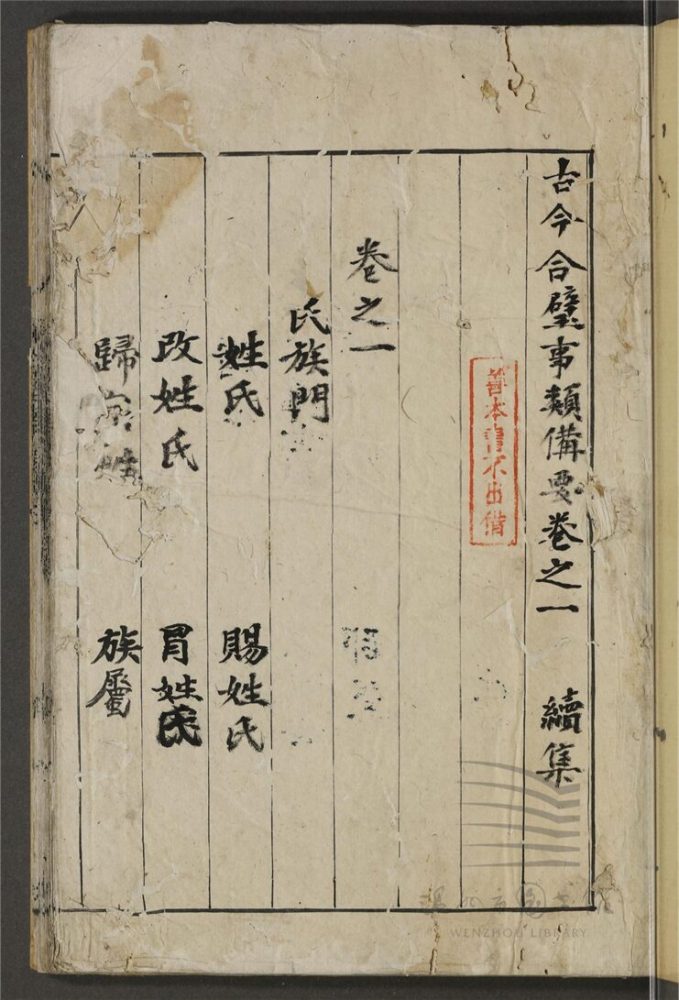 古今合璧事類備要卷之一　續集
善本書不出借
卷之一
氏族門
姓氏　賜姓氏
改姓氏　冒姓氏
歸　姓　族屬
WENZHOU LIBRARY